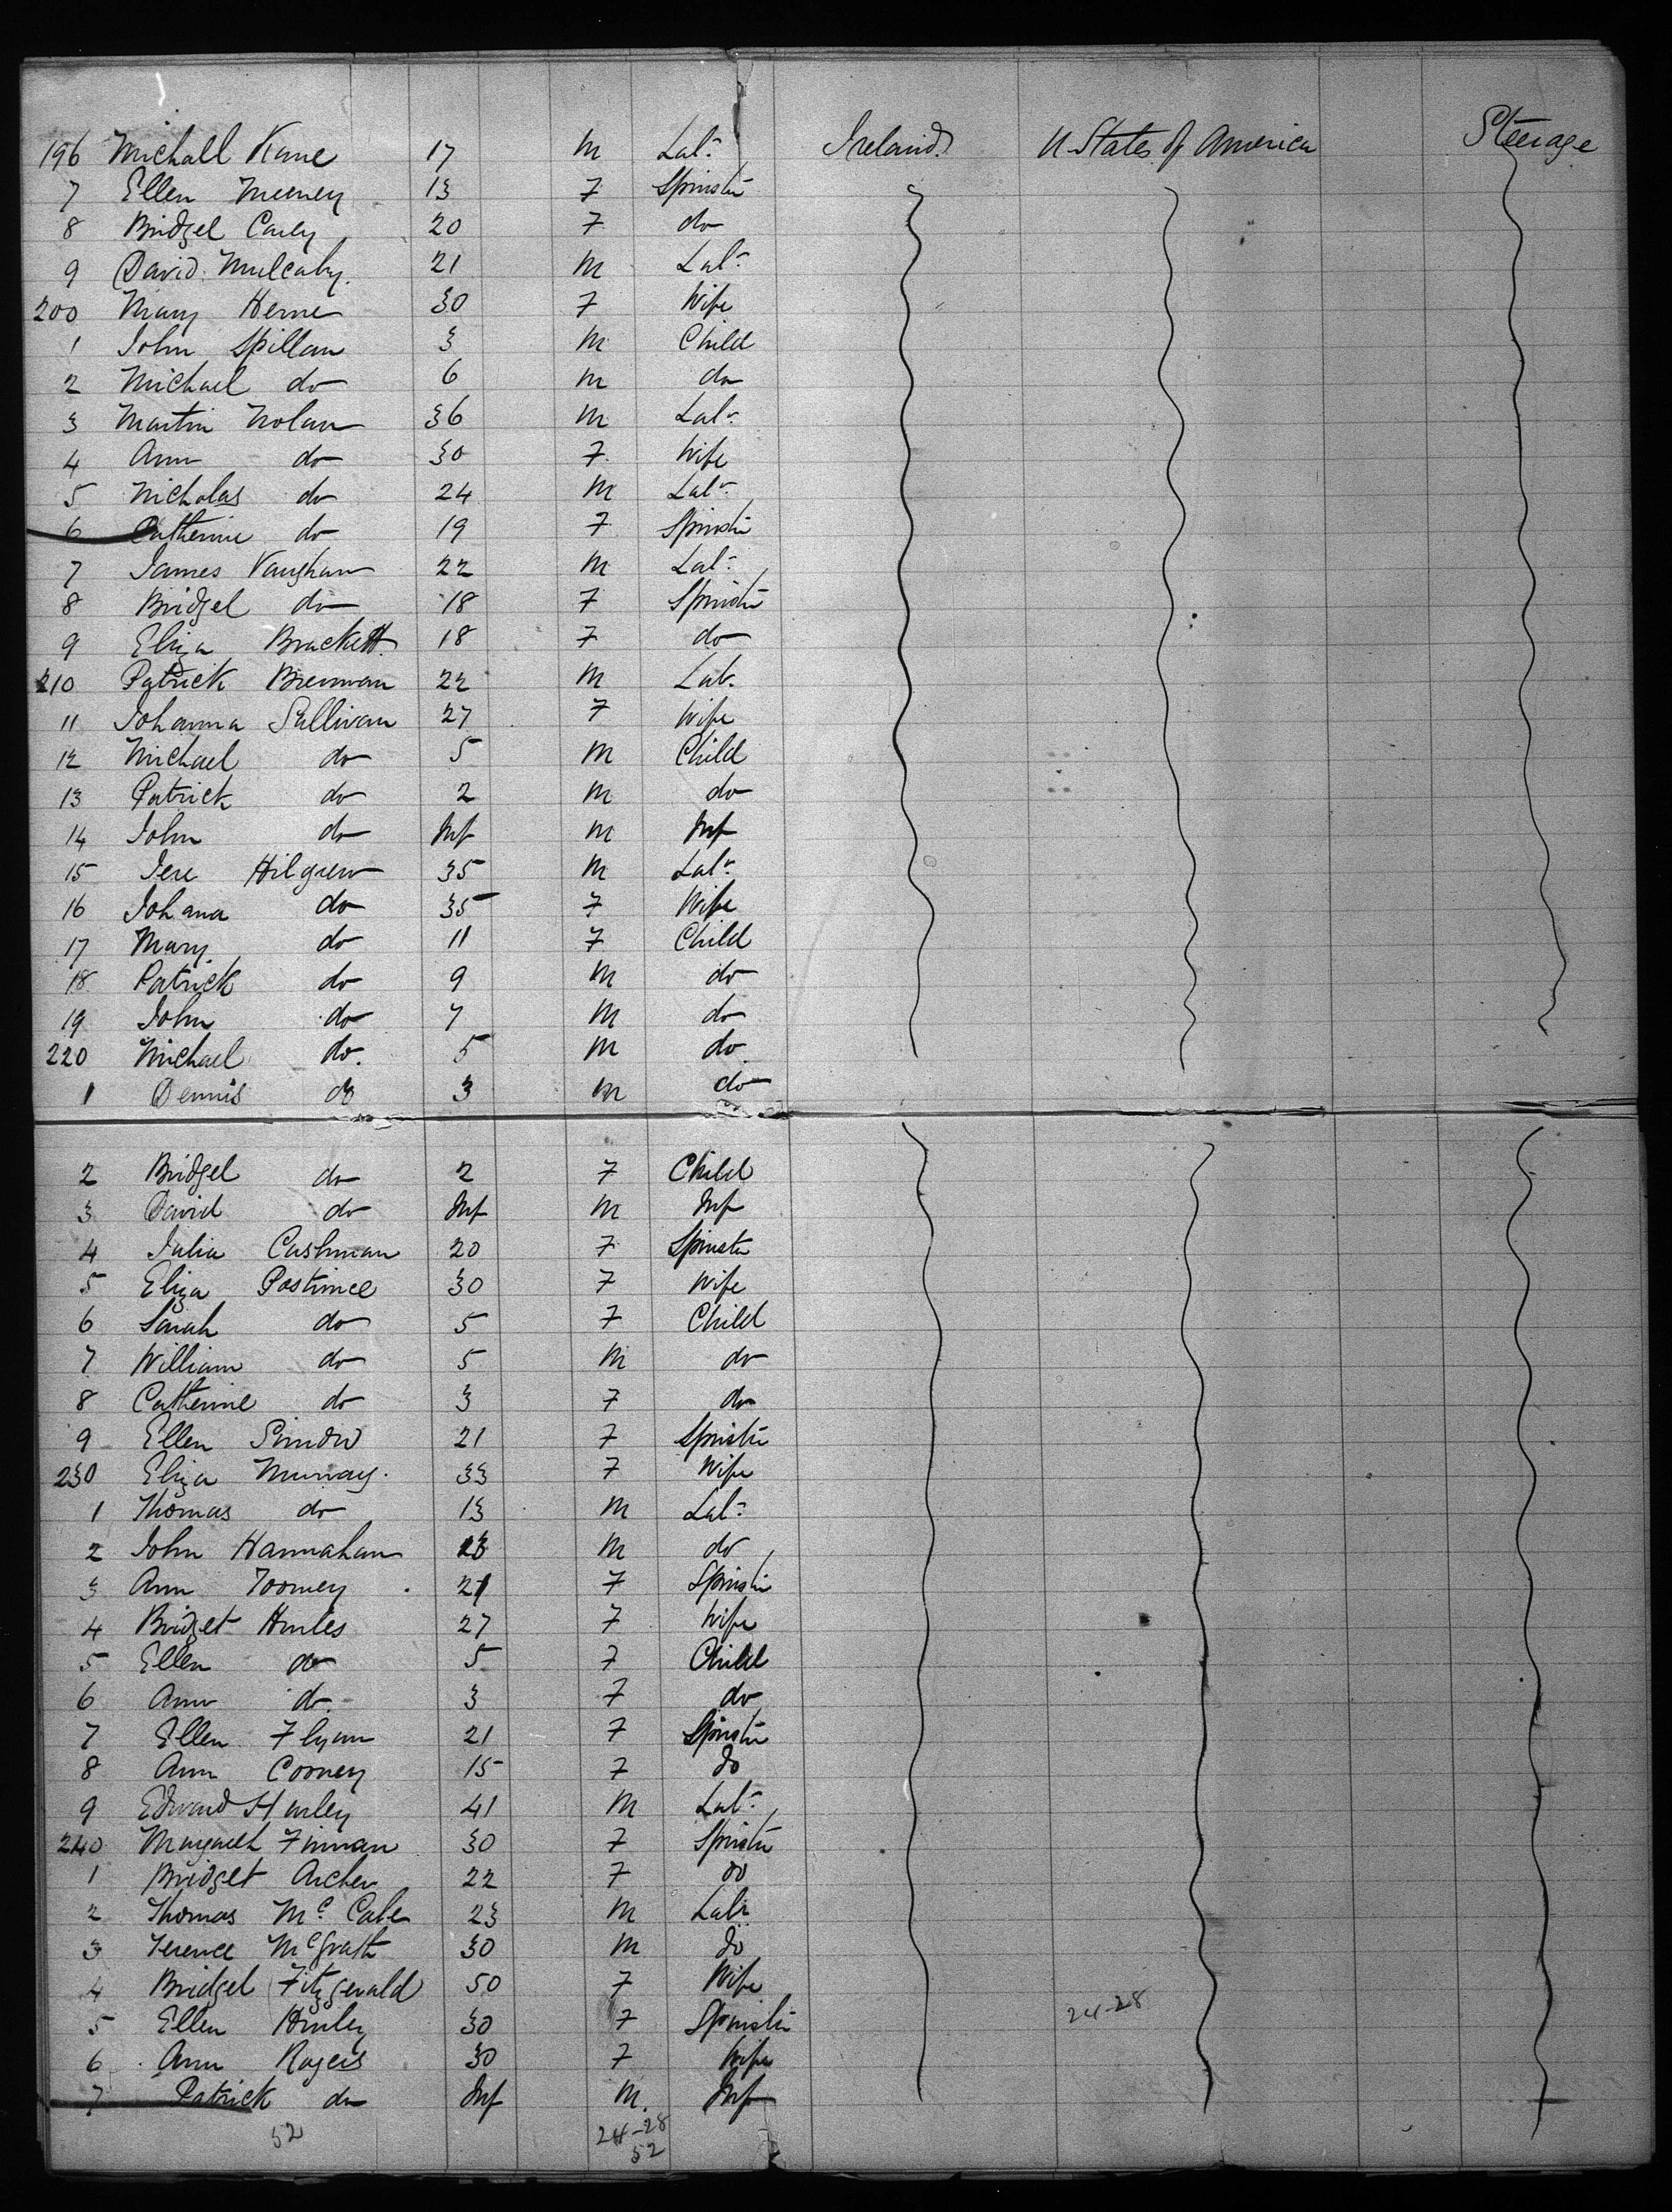 196 Michall Kane 17 M Labr Ireland. U States of America Steerage
7 Ellen Meeney 13 F Spinster
8 Bridget Carey 20 F do
9 David Mulcahy. 21 M Labr
200 Mary Herne 30 F Wife
1 John Spillan 3 M Child
2 Michael do 6 M do
3 Martin Nolan 36 M Labr
4 Ann do 30 F Wife
5 Nicholas do 24 M Labr
6 Catherine do 19 F Spinster
7 James Vaughan 22 M Labr
8 Bridget do 18 F Spinster
9 Eliza Brackett 18 F do
210 Patrick Brennan 22 M Lab.
11 Johanna Sullivan 27 F Wife
12 Michael do 5 M Child
13 Patrick do 2 M do
14 John do Inf M Inf
15 Jere Hilgrew 35 M Labr
16 Johana do 35 F Wife
17 Mary do 11 F Child
18 Patrick do 9 M do
19 John do 7 M do
220 Michael do. 5 M do
1 Dennis do 3 M do
2 Bridget do 2 F Child
3 David do Inf M Inf
4 Julia Cashman 20 F Spinster
5 Eliza 30 F Wife
6 Sarah do 5 F Child
7 William do 5 M do
8 Catherine do 3 F do
9 Ellen 21 F Spinster
230 Eliza Murray. 33 F Wife
1 Thomas do 13 M Labr
2 John Hannahan 23 M do
3 Ann Toomey 21 F Spinster
4 Bridget 27 F Wife
5 Ellen do 5 F Child
6 Ann do 3 F do
7 Ellen Flynn 21 F Spinster
8 Ann Cooney 15 F do
9 Edward Hurley 41 M Labr
240 Margaret Finnan 30 F Spinster
1 Bridget Archer 22 F do
2 Thomas Mc Cabe 23 M Labr
3 Terence McGrath 30 M do
4 Bridget Fitzgerald 50 F Wife
5 Ellen Hurley 30 F Spinster 24-28
6 Ann Rogers 30 F Wife
7 Patrick do Inf M. Inf
52 24-28
52